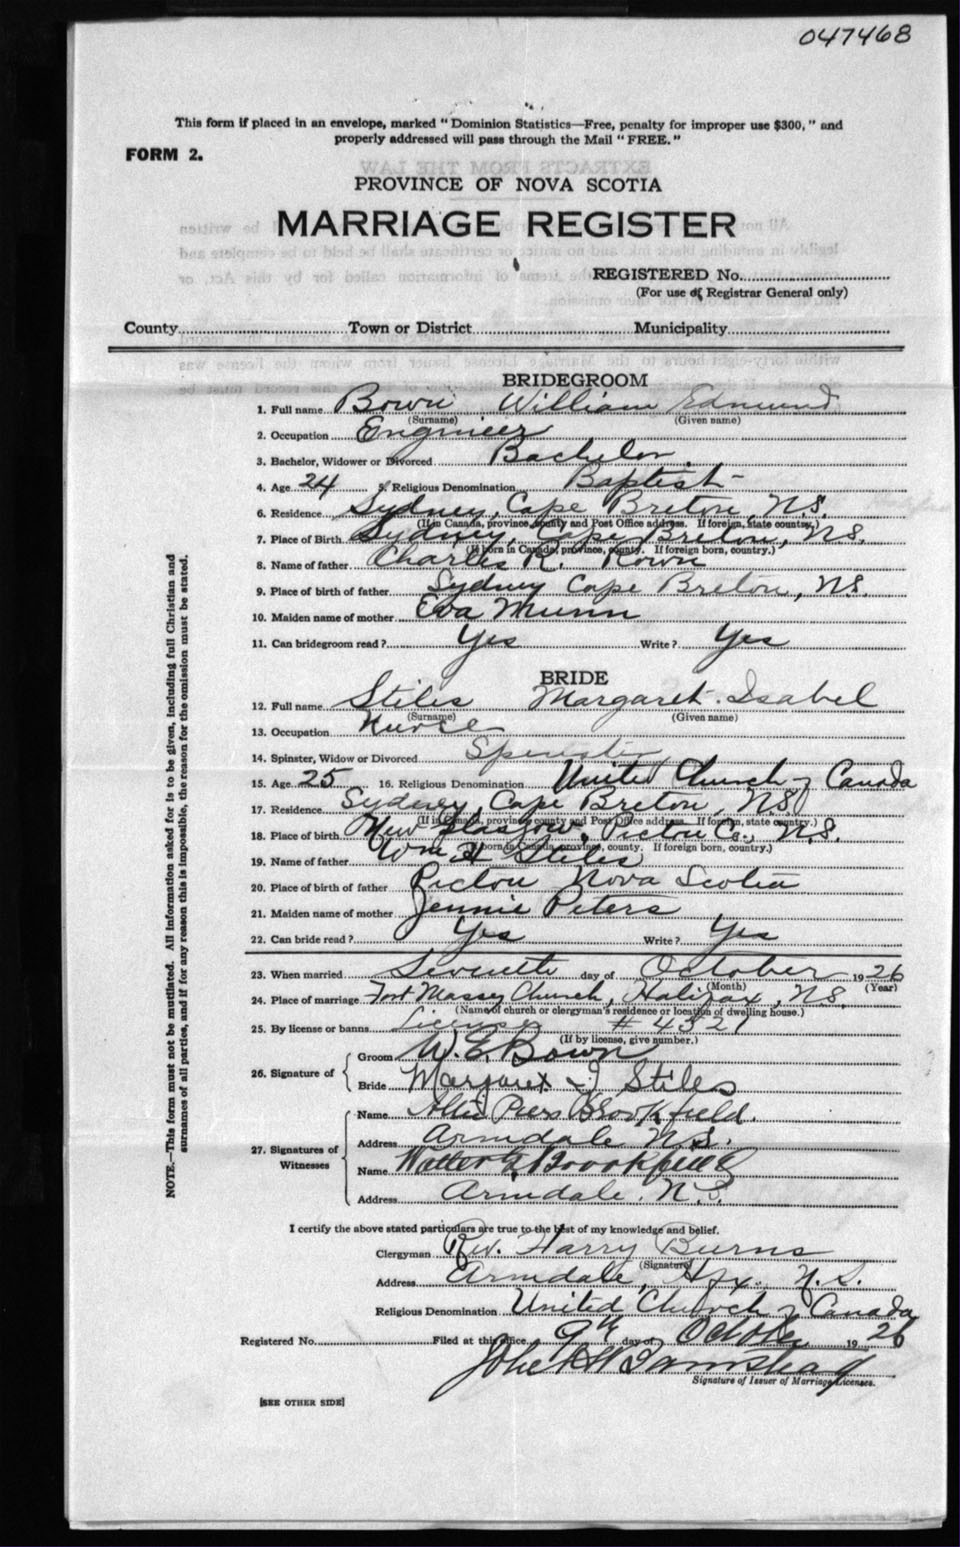 047468
This form if placed in an envelope, marked "Dominion Statistics—Free, penalty for improper use $300," and
properly addressed will pass through the Mail "FREE."
FORM 2.
PROVINCE OF NOVA SCOTIA
MARRIAGE REGISTER
REGISTERED No.
(For use of Registrar General only)
County Town or District Municipality
BRIDEGROOM
1. Full name Bown William Edmund
(Surname) (Given name)
2. Occupation Engineer
3. Bachelor, Widower or Divorced Bachelor
4. Age 24 5. Religious Denomination Baptist
6. Residence Sydney, Cape Breton, N.S.
(If in Canada, province, county and Post Office address. If foreign, state country.)
7. Place of Birth Sydney, Cape Breton, N.S.
(If born in Canada, province, county. If foreign born, country.)
8. Name of father Charles R. Bown
9. Place of birth of father Sydney Cape Breton, N.S.
10. Maiden name of mother Eva Munn
11. Can bridegroom read? Yes Write? Yes
BRIDE
12. Full name Stiles Margaret Isabel
(Surname) (Given name)
13. Occupation Nurse
14. Spinster, Widow or Divorced Spinster
15. Age 25 16. Religious Denomination United Church of Canada
17. Residence Sydney, Cape Breton, N.S.
(If in Canada, province, county and Post Office address. If foreign, state country.)
18. Place of birth New Glasgow, Pictou Co., N.S.
(If born in Canada, province, county. If foreign born, country.)
19. Name of father Wm H Stiles
20. Place of birth of father Pictou Nova Scotia
21. Maiden name of mother Jennie Peters
22. Can bride read? Yes Write? Yes
23. When married Seventh day of October 1926
(Month) (Year)
24. Place of marriage Fort Massey Church, Halifax, N.S.
(Name of church or clergyman's residence or location of dwelling house.)
25. By license or banns License # 4321
(If by license, give number.)
26. Signature of
Groom W. E. Bown
Bride Margaret I Stiles
27. Signatures of Witnesses
Name Piers Brookfield.
Address Armdale N.S.
Name Walter Brookfield
Address Armdale. N.S.
I certify the above stated particulars are true to the best of my knowledge and belief.
Clergyman Rev. Harry Burns
(Signature)
Address Armdale, Hfx. N.S.
Religious Denomination United Church of Canada
Registered No. Filed at this office 9th day of October 1926
John
Signature of Issuer of Marriage Licenses.
[SEE OTHER SIDE]
NOTE.—This form must not be mutilated. All information asked for is to be given, including full Christian and
surnames of all parties, and if for any reason this is impossible, the reason for the omission must be stated.